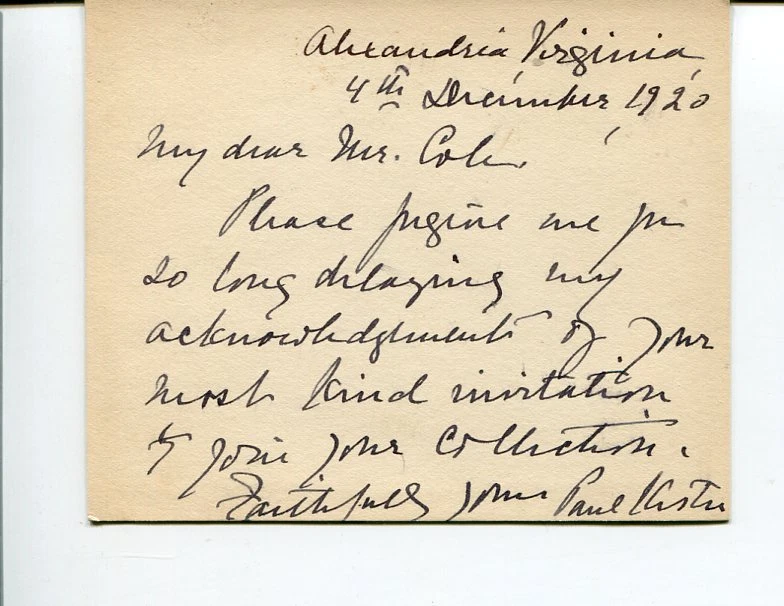 Alexandria Virginia,
4th December 1920
My dear Mr. Cole,
Please forgive me for
so long delaying my
acknowledgment of your
most kind invitation
to join your collection.
Faithfully yours Paul Kester